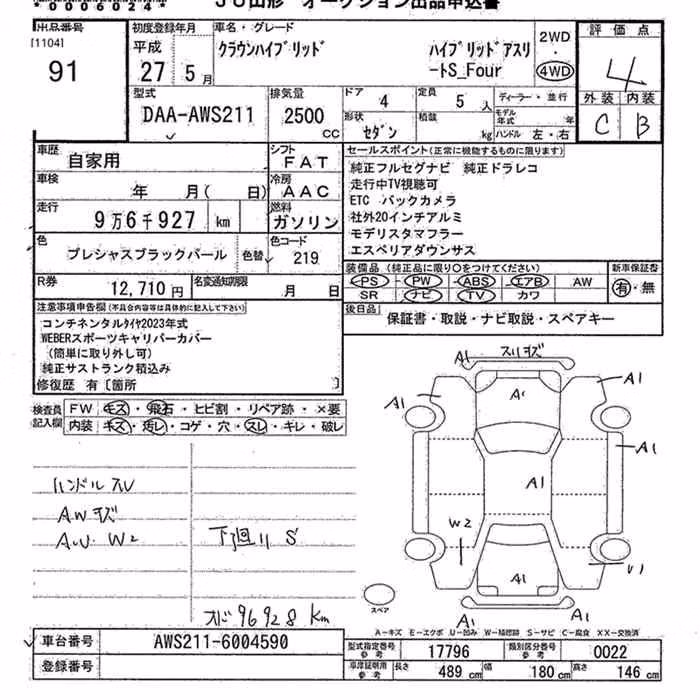 *0006024* JU山形 オークション出品申込書
出品番号 [1104] 91
初度登録年月 平成 27年 5月
車名・グレード クラウンハイブリッド ハイブリッドアスリートS_Four
2WD 4WD
評価点 4
外装 C 内装 B
型式 DAA-AWS211
排気量 2500 CC
ドア 4 定員 5人
形状 セダン 積載 kg
ディーラー・並行
モデル年式 年
ハンドル 左・右
車歴 自家用
シフト FAT
車検 年 月( 日)
冷房 AAC
走行 9万6千927 km
燃料 ガソリン
色 プレシャスブラックパール 色替
色コード 219
R券 12,710円
名変通知期限 月 日
セールスポイント(正常に機能するものに限ります)
純正フルセグナビ 純正ドラレコ
走行中TV視聴可
ETC バックカメラ
社外20インチアルミ
モデリスタマフラー
エスペリアダウンサス
装備品(純正品に限り○をつけてください)
PS・PW・ABS・エアB・AW
SR ナビ・TV・カワ
新車保証書 有・無
後日品 保証書・取説・ナビ取説・スペアキー
注意事項申告欄(不具合内容等は具体的に記入して下さい)
コンチネンタルタイヤ2023年式
WEBERスポーツキャリパーカバー
(簡単に取り外し可)
純正サストランク積込み
修復歴 有〔箇所 〕
検査員記入欄
FW キズ・飛石・ヒビ割・リペア跡・×要
内装 キズ・汚レ・コゲ・穴・スレ・キレ・破レ
ハンドルスレ
AWキズ
A.U. W2 下廻りS
オド96928Km
A1 スリキズ
A1 A1 A1
A1 A1
W2
A1 U1
A1 A1
スペア
A−キズ E−エクボ U−凹み W−補修跡 S−サビ C−腐食 XX−交換済
車台番号 AWS211-6004590
登録番号
型式指定番号 参考 17796
類別区分番号 参考 0022
車庫証明用 参考 長さ 489 cm 幅 180 cm 高さ 146 cm